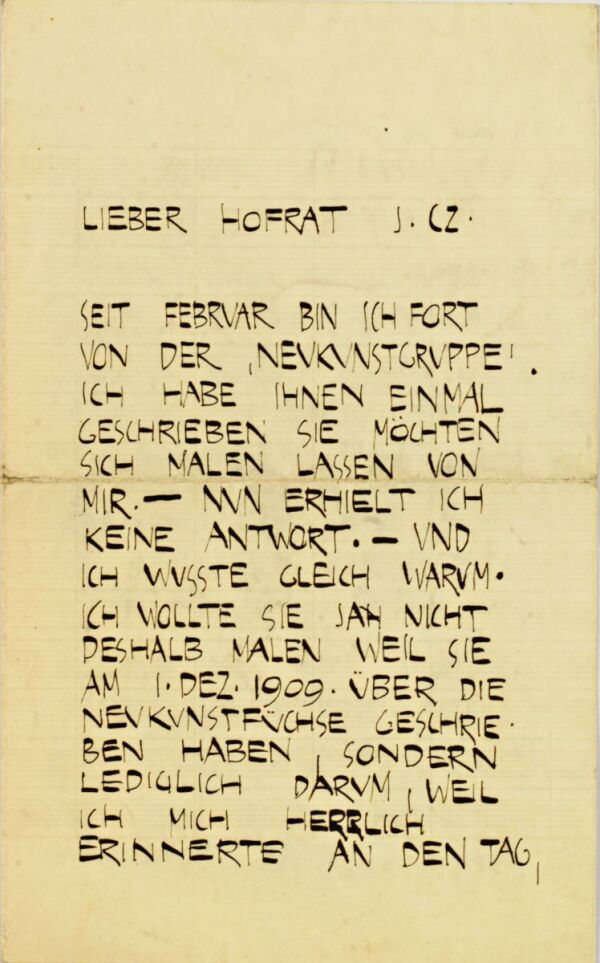 LIEBER HOFRAT J. CZ.
SEIT FEBRVAR BIN ICH FORT
VON DER ‚NEVKVNSTGRVPPE'.
ICH HABE IHNEN EINMAL
GESCHRIEBEN SIE MÖCHTEN
SICH MALEN LASSEN VON
MIR.— NVN ERHIELT ICH
KEINE ANTWORT.— VND
ICH WVSSTE GLEICH WARVM.
ICH WOLLTE SIE JAH NICHT
DESHALB MALEN WEIL SIE
AM 1. DEZ. 1909. ÜBER DIE
NEVKVNSTFÜCHSE GESCHRIE-
BEN HABEN, SONDERN
LEDIGLICH DARVM, WEIL
ICH MICH HERRLICH
ERINNERTE AN DEN TAG,